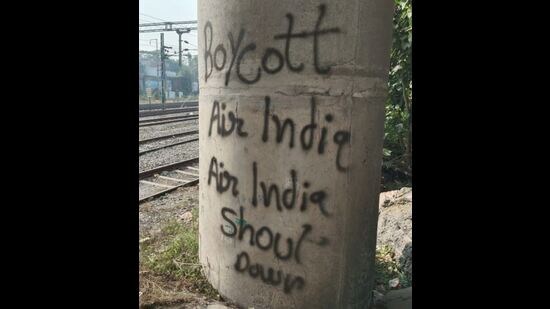 Boycott
Air India
Air India
Shout
Down